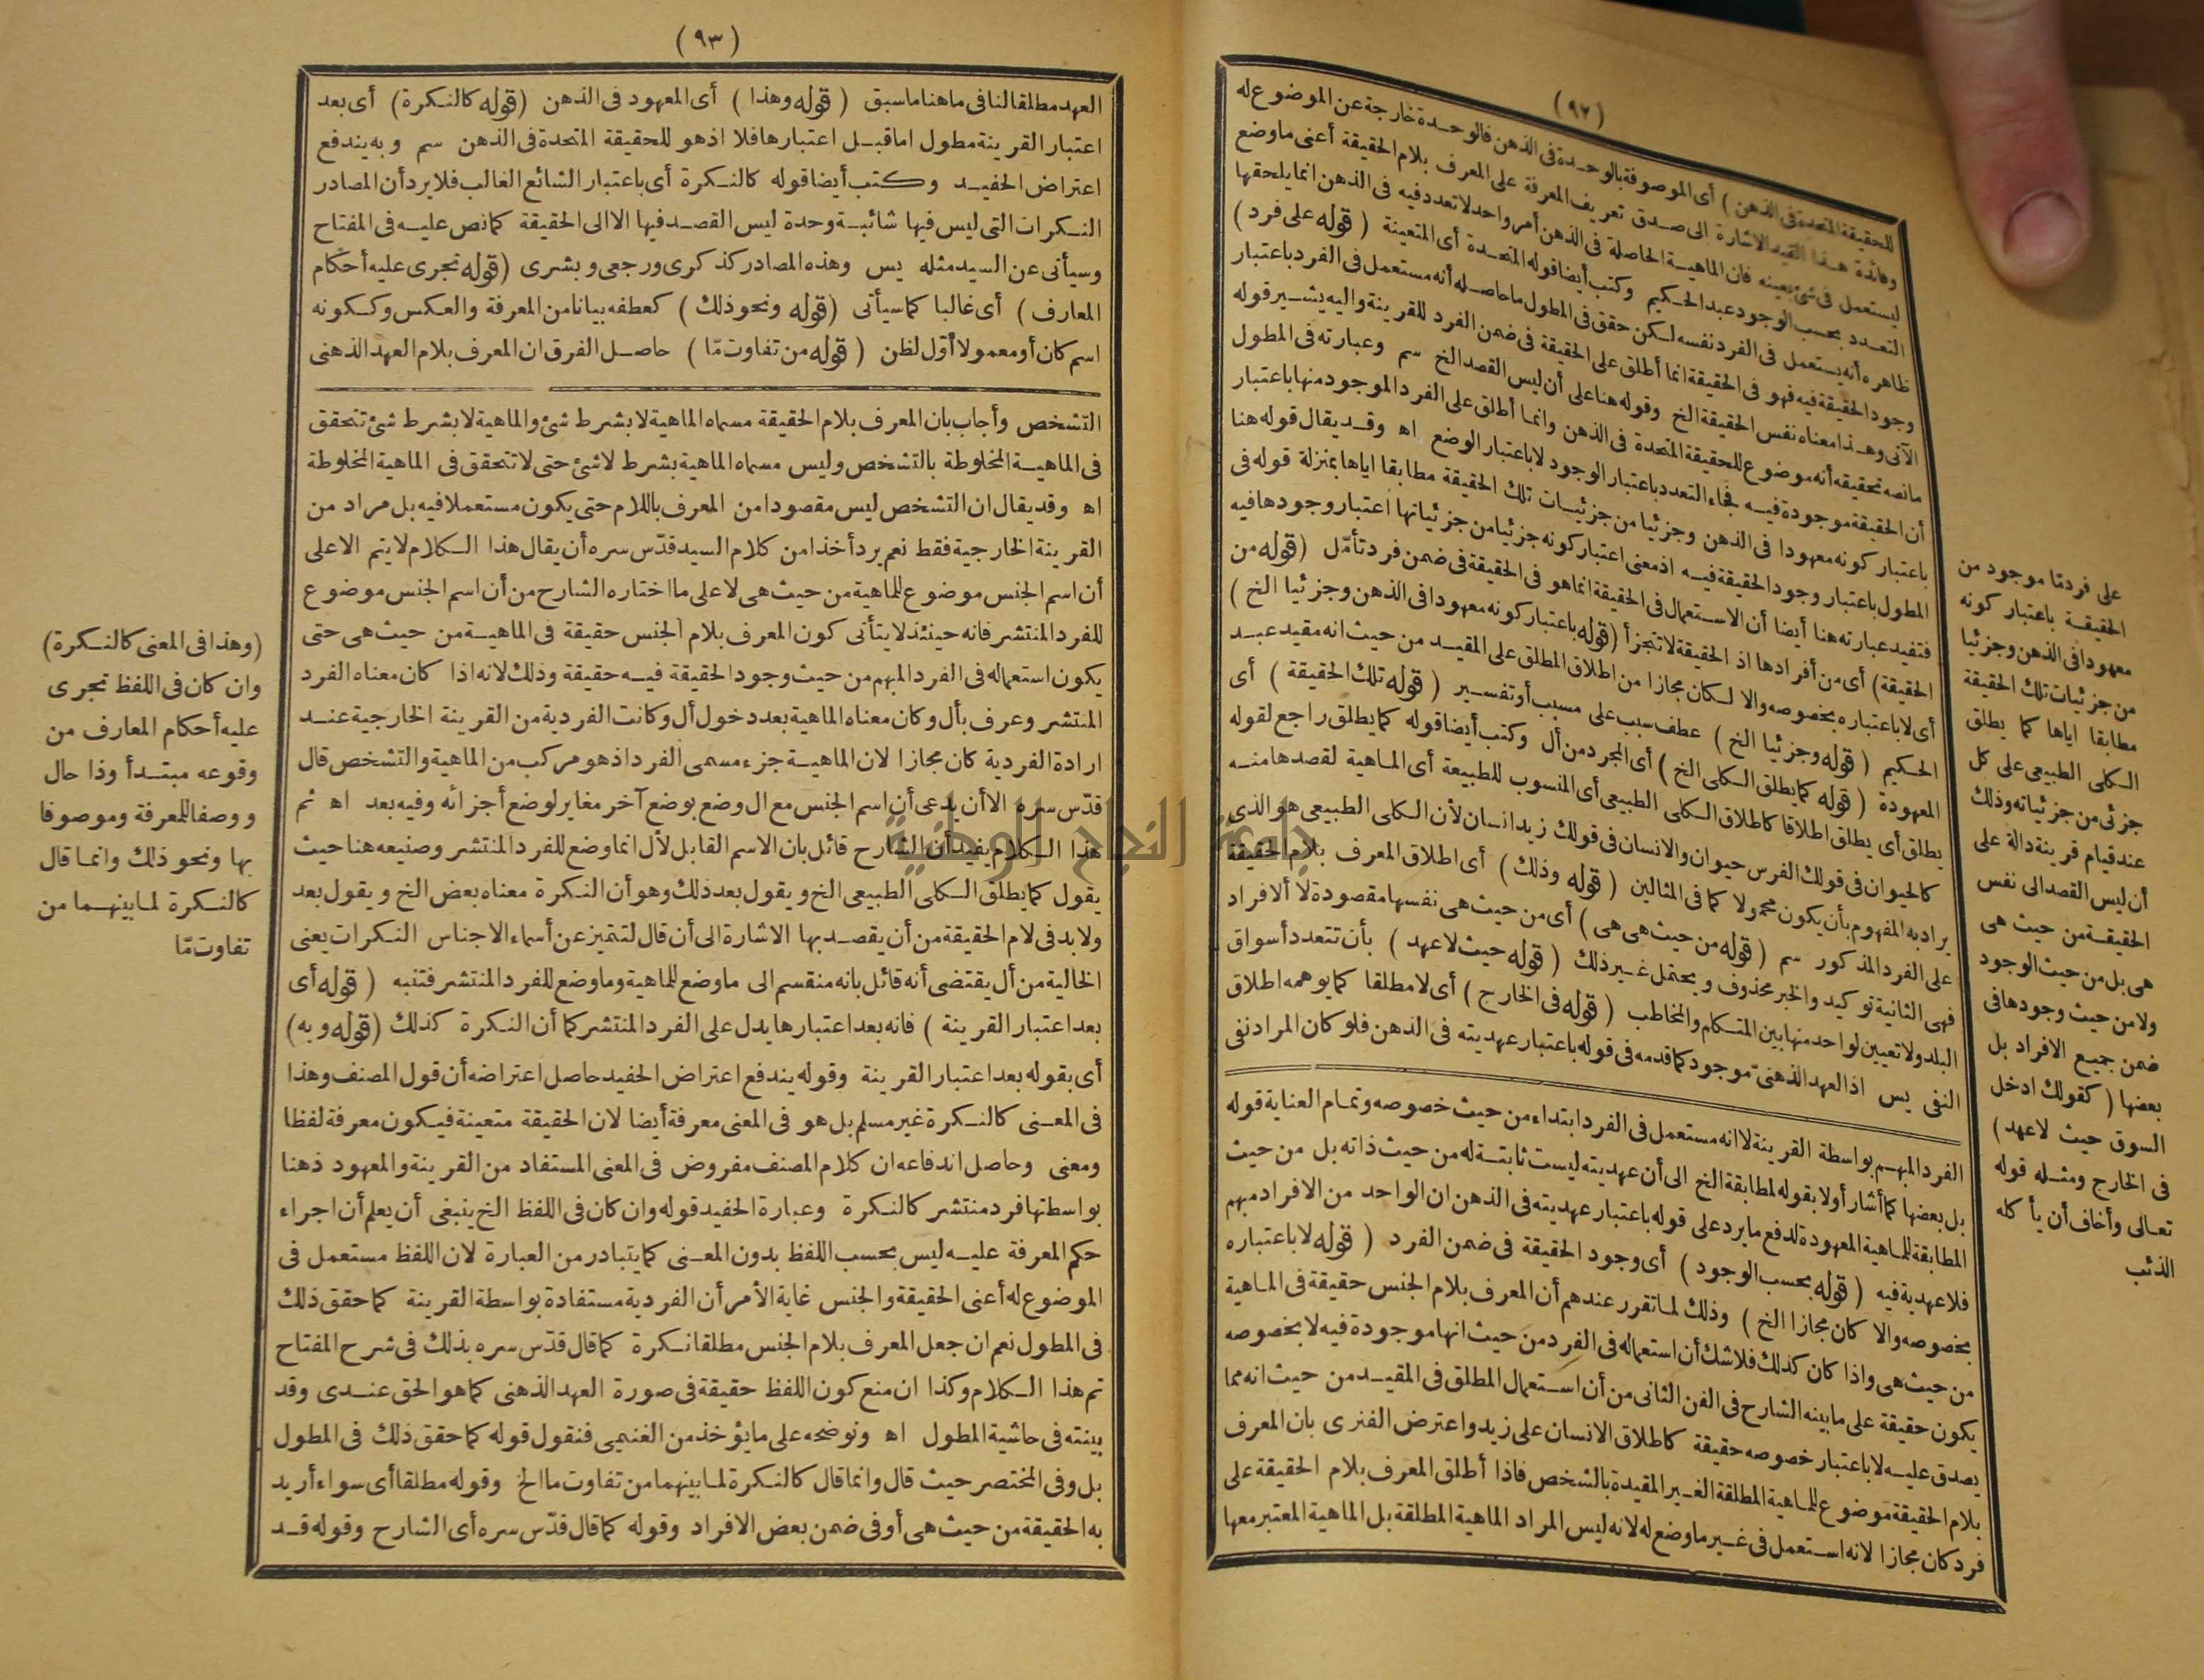 (٩٢)
للحقيقة المتحدة فى الذهن ) أى الموصوفة بالوحدة فى الذهن فالوحدة خارجة عن الموضوع له
وفائدة هذا القيد الاشارة الى صدق تعريف المعرفة على المعرف بلام الحقيقة أعنى ماوضع
ليستعمل فى شئ بعينه فان الماهية الحاصلة فى الذهن أمر واحد لا تعدد فيه فى الذهن انما يلحقها
التعدد بحسب الوجود عبد الحكيم وكتب أيضا قوله المتحدة أى المتعينة ( قوله على فرد )
ظاهره أنه يستعمل فى الفرد نفسه لكن حقق فى المطول ما حاصله أنه مستعمل فى الفرد باعتبار
وجود الحقيقة فيه فهو فى الحقيقة انما أطلق على الحقيقة فى ضمن الفرد للقرينة واليه يشير قوله
الآتى وهذا معناه نفس الحقيقة الخ وقوله هنا على أن ليس القصد الخ سم وعبارته فى المطول
مانصه تحقيقه أنه موضوع للحقيقة المتحدة فى الذهن وانما أطلق على الفرد الموجود منها باعتبار
أن الحقيقة موجودة فيه فجاء التعدد باعتبار الوجود لا باعتبار الوضع اه وقد يقال قوله هنا
باعتبار كونه معهودا فى الذهن وجزئيا من جزئيات تلك الحقيقة مطابقا اياها بمنزلة قوله فى
المطول باعتبار وجود الحقيقة فيه اذ معنى اعتبار كونه جزئيا من جزئياتها اعتبار وجودها فيه
فتفيد عبارته هنا أيضا أن الاستعمال فى الحقيقة انما هو فى الحقيقة فى ضمن فرد تأمّل ( قوله من
الحقيقة) أى من أفرادها اذ الحقيقة لا تتجزأ (قوله باعتبار كونه معهودا فى الذهن وجزئيا الخ )
أى لا باعتباره بخصوصه والا لكان مجازا من اطلاق المطلق على المقيد من حيث انه مقيد عبد
الحكيم ( قوله وجزئيا الخ ) عطف سبب على مسبب أو تفسير ( قوله تلك الحقيقة ) أى
المعهودة ( قوله كما يطلق الكلى الخ ) أى المجرد من أل وكتب أيضا قوله كما يطلق راجع لقوله
يطلق أى يطلق اطلاقا كاطلاق الكلى الطبيعى أى المنسوب للطبيعة أى الماهية لقصدها منه
كالحيوان فى قولك الفرس حيوان والانسان فى قولك زيد انسان لأن الكلى الطبيعى هو الذى
يراد به المفهوم بأن يكون محمولا كما فى المثالين ( قوله وذلك ) أى اطلاق المعرف بلام الحقيقة
على الفرد المذكور سم ( قوله من حيث هى هى ) أى من حيث هى نفسها مقصودة لا الافراد
فهى الثانية توكيد والخبر محذوف ويحتمل غير ذلك ( قوله حيث لا عهد ) بأن تتعدد أسواق
البلد ولا تعيين لواحد منها بين المتكلم والمخاطب ( قوله فى الخارج ) أى لا مطلقا كما يوهمه اطلاق
النفى يس اذ العهد الذهنى موجود كما قدمه فى قوله باعتبار عهديته فى الذهن فلو كان المراد نفى
الفرد المبهم بواسطة القرينة لا انه مستعمل فى الفرد ابتداء من حيث خصوصه وتمام العناية قوله
بل بعضها كما أشار أولا بقوله لمطابقة الخ الى أن عهديته ليست ثابتة له من حيث ذاته بل من حيث
المطابقة للماهية المعهودة لدفع ما يرد على قوله باعتبار عهديته فى الذهن ان الواحد من الافراد مبهم
فلا عهدية فيه ( قوله بحسب الوجود ) أى وجود الحقيقة فى ضمن الفرد ( قوله لا باعتباره
بخصوصه والا كان مجازا الخ ) وذلك لما تقرر عندهم أن المعرف بلام الجنس حقيقة فى الماهية
من حيث هى واذا كان كذلك فلا شك أن استعماله فى الفرد من حيث انها موجودة فيه لا بخصوصه
يكون حقيقة على ما بينه الشارح فى الفن الثانى من أن استعمال المطلق فى المقيد من حيث انه مما
يصدق عليه لا باعتبار خصوصه حقيقة كاطلاق الانسان على زيد واعترض الفنرى بان المعرف
بلام الحقيقة موضوع للماهية المطلقة الغير المقيدة بالشخص فاذا أطلق المعرف بلام الحقيقة على
فرد كان مجازا لانه استعمل فى غير ماوضع له لانه ليس المراد الماهية المطلقة بل الماهية المعتبر معها
على فرد ما موجود من
الحقيقة باعتبار كونه
معهودا فى الذهن وجزئيا
من جزئيات تلك الحقيقة
مطابقا اياها كما يطلق
الكلى الطبيعى على كل
جزئى من جزئياته وذلك
عند قيام قرينة دالة على
أن ليس القصد الى نفس
الحقيقة من حيث هى
هى بل من حيث الوجود
ولا من حيث وجودها فى
ضمن جميع الافراد بل
بعضها ( كقولك ادخل
السوق حيث لا عهد )
فى الخارج ومثله قوله
تعالى وأخاف أن يأكله
الذئب
(٩٣)
العهد مطلقا لنافى ما هنا ما سبق ( قوله وهذا ) أى المعهود فى الذهن (قوله كالنكرة) أى بعد
اعتبار القرينة مطول اما قبل اعتبارها فلا اذ هو للحقيقة المتحدة فى الذهن سم وبه يندفع
اعتراض الحفيد وكتب أيضا قوله كالنكرة أى باعتبار الشائع الغالب فلا يرد أن المصادر
النكرات التى ليس فيها شائبة وحدة ليس القصد فيها الا الى الحقيقة كما نص عليه فى المفتاح
وسيأتى عن السيد مثله يس وهذه المصادر كذكرى ورجعى وبشرى (قوله تجرى عليه أحكام
المعارف ) أى غالبا كما سيأتى (قوله ونحو ذلك ) كعطفه بيانا من المعرفة والعكس وككونه
اسم كان أو معمولا أوّل لظن ( قوله من تفاوت مّا ) حاصل الفرق ان المعرف بلام العهد الذهنى
التشخص وأجاب بان المعرف بلام الحقيقة مسماه الماهية لا بشرط شئ والماهية لا بشرط شئ تتحقق
فى الماهية المخلوطة بالتشخص وليس مسماه الماهية بشرط لا شئ حتى لا تتحقق فى الماهية المخلوطة
اه وقد يقال ان التشخص ليس مقصودا من المعرف باللام حتى يكون مستعملا فيه بل مراد من
القرينة الخارجية فقط نعم يرد أخذا من كلام السيد قدّس سره أن يقال هذا الكلام لا يتم الا على
أن اسم الجنس موضوع للماهية من حيث هى لا على ما اختاره الشارح من أن اسم الجنس موضوع
للفرد المنتشر فانه حينئذ لا يتأتى كون المعرف بلام الجنس حقيقة فى الماهية من حيث هى حتى
يكون استعماله فى الفرد المبهم من حيث وجود الحقيقة فيه حقيقة وذلك لانه اذا كان معناه الفرد
المنتشر وعرف بأل وكان معناه الماهية بعد دخول أل وكانت الفردية من القرينة الخارجية عند
ارادة الفردية كان مجازا لان الماهية جزء مسمى الفرد اذ هو مركب من الماهية والتشخص قال
قدّس سره الا أن يدعى أن اسم الجنس مع ال وضع بوضع آخر مغاير لوضع أجزائه وفيه بعد اه ثم
هذا الكلام يفيد أن الشارح قائل بان الاسم القابل لأل انما وضع للفرد المنتشر وصنيعه هنا حيث
يقول كما يطلق الكلى الطبيعى الخ ويقول بعد ذلك وهو أن النكرة معناه بعض الخ ويقول بعد
ولا بد فى لام الحقيقة من أن يقصد بها الاشارة الى أن قال لتتميز عن أسماء الاجناس النكرات يعنى
الخالية من أل يقتضى أنه قائل بانه منقسم الى ماوضع للماهية وماوضع للفرد المنتشر فتنبه ( قوله أى
بعد اعتبار القرينة ) فانه بعد اعتبارها يدل على الفرد المنتشر كما أن النكرة كذلك (قوله وبه)
أى بقوله بعد اعتبار القرينة وقوله يندفع اعتراض الحفيد حاصل اعتراضه أن قول المصنف وهذا
فى المعنى كالنكرة غير مسلم بل هو فى المعنى معرفة أيضا لان الحقيقة متعينة فيكون معرفة لفظا
ومعنى وحاصل اندفاعه ان كلام المصنف مفروض فى المعنى المستفاد من القرينة والمعهود ذهنا
بواسطتها فرد منتشر كالنكرة وعبارة الحفيد قوله وان كان فى اللفظ الخ ينبغى أن يعلم أن اجراء
حكم المعرفة عليه ليس بحسب اللفظ بدون المعنى كما يتبادر من العبارة لان اللفظ مستعمل فى
الموضوع له أعنى الحقيقة والجنس غاية الأمر أن الفردية مستفادة بواسطة القرينة كما حقق ذلك
فى المطول نعم ان جعل المعرف بلام الجنس مطلقا نكرة كما قال قدّس سره بذلك فى شرح المفتاح
تم هذا الكلام وكذا ان منع كون اللفظ حقيقة فى صورة العهد الذهنى كما هو الحق عندى وقد
بينته فى حاشية المطول اه ونوضحه على ما يؤخذ من الغنيمى فنقول قوله كما حقق ذلك فى المطول
بل وفى المختصر حيث قال وانما قال كالنكرة لما بينهما من تفاوت ما الخ وقوله مطلقا أى سواء أريد
به الحقيقة من حيث هى أو فى ضمن بعض الافراد وقوله كما قال قدّس سره أى الشارح وقوله قد
(وهذا فى المعنى كالنكرة)
وان كان فى اللفظ تجرى
عليه أحكام المعارف من
وقوعه مبتدأ وذا حال
ووصفا للمعرفة وموصوفا
بها ونحو ذلك وانما قال
كالنكرة لما بينهما من
تفاوت مّا
جامعة النجاح الوطنية